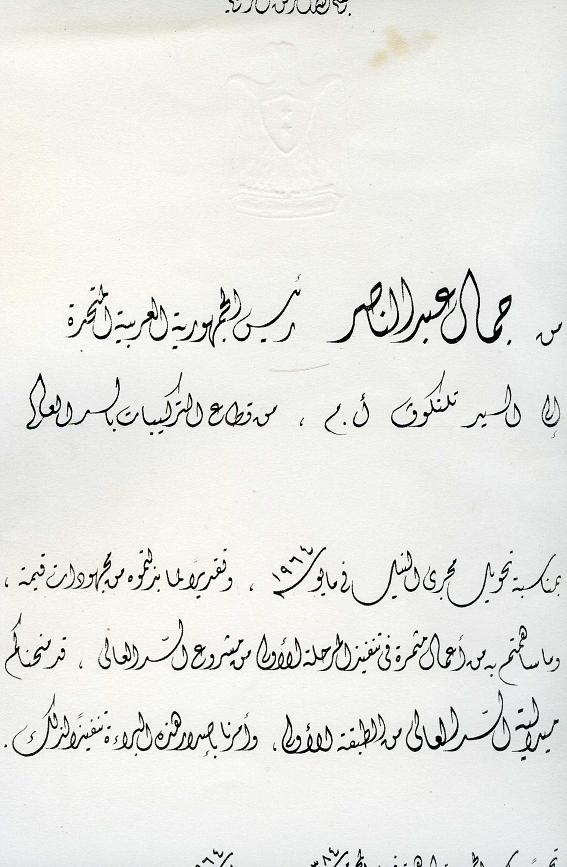 من جمال عبد الناصر رئيس الجمهورية العربية المتحدة
إلى السيد تلنكوف أ.م ، من قطاع التركيبات بالسد العالى
بمناسبة تحويل مجرى النيل فى مايو ١٩٦٤ ، وتقديرًا لما بذلتموه من مجهودات قيمة ،
وما ساهمتم به من أعمال مثمرة فى تنفيذ المرحلة الأولى من مشروع السد العالى ، قد منحناكم
ميدالية السد العالى من الطبقة الأولى ، وأمرنا بإصدار هذه البراءة تنفيذًا لذلك .